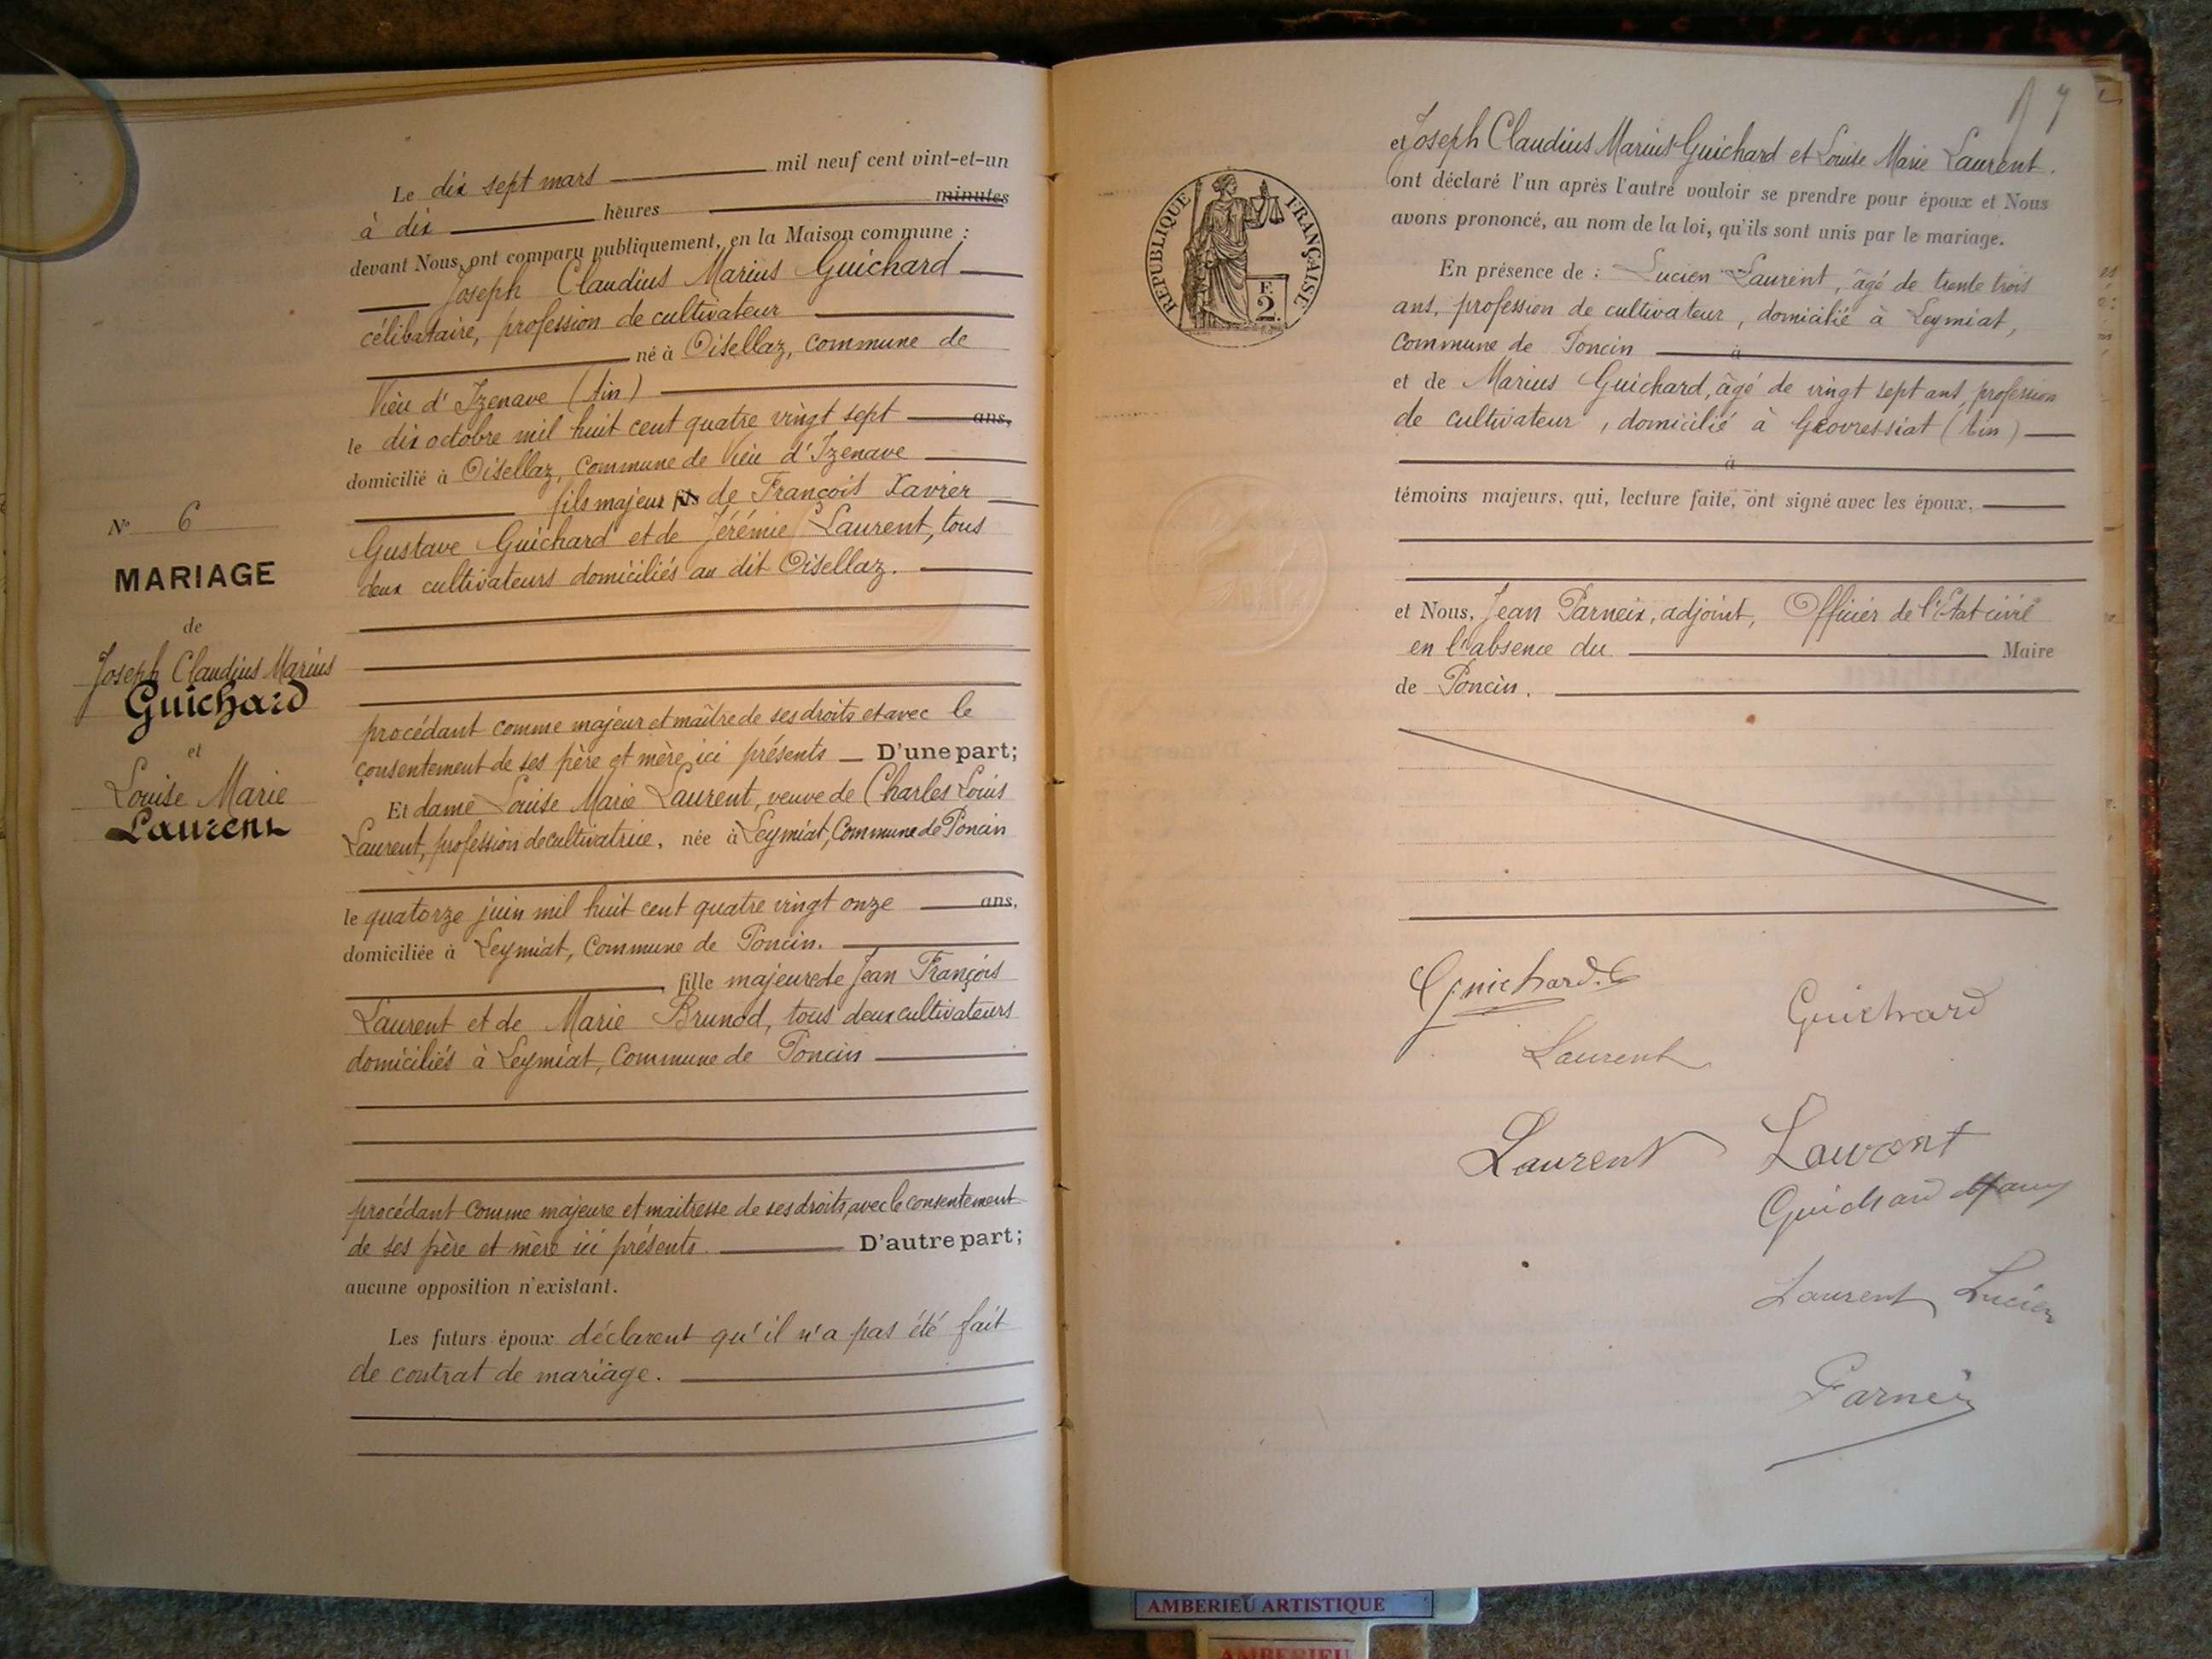 N° 6
MARIAGE
de
Joseph Claudius Marius
Guichard
et
Louise Marie
Laurent
Le dix sept mars mil neuf cent vint-et-un
à dix heures minutes
devant Nous, ont comparu publiquement, en la Maison commune :
Joseph Claudius Marius Guichard
célibataire, profession de cultivateur
né à Oisellaz, commune de
Vieu d'Izenave (Ain)
le dix octobre mil huit cent quatre vingt sept ans,
domicilié à Oisellaz, commune de Vieu d'Izenave
fils majeur fils de François Xavier
Gustave Guichard et de Jérémie Laurent, tous
deux cultivateurs domiciliés au dit Oisellaz.
procédant comme majeur et maître de ses droits et avec le
consentement de ses père et mère ici présents D'une part;
Et dame Louise Marie Laurent, veuve de Charles Louis
Laurent, profession de cultivatrice, née à Leymiat, Commune de Poncin
le quatorze juin mil huit cent quatre vingt onze ans,
domiciliée à Leymiat, Commune de Poncin.
fille majeure de Jean François
Laurent et de Marie Brunod, tous deux cultivateurs
domiciliés à Leymiat, Commune de Poncin
procédant comme majeure et maitresse de ses droits, avec le consentement
de ses père et mère ici présents D'autre part;
aucune opposition n'existant.
Les futurs époux déclarent qu'il n'a pas été fait
de contrat de mariage.
REPUBLIQUE FRANÇAISE
F.
2.
et Joseph Claudius Marius Guichard et Louise Marie Laurent.
ont déclaré l'un après l'autre vouloir se prendre pour époux et Nous
avons prononcé, au nom de la loi, qu'ils sont unis par le mariage.
En présence de : Lucien Laurent, âgé de trente trois
ans, profession de cultivateur, domicilié à Leymiat,
Commune de Poncin à
et de Marius Guichard, âgé de vingt sept ans, profession
de cultivateur, domicilié à Géovressiat (Ain)
à
témoins majeurs, qui, lecture faite, ont signé avec les époux,
et Nous, Jean Parneix, adjoint, Officier de l'Etat civil
en l'absence du Maire
de Poncin.
Guichard. C
Guichard
Laurent
Laurent Laurent
Guichard
Laurent Lucien
Parneix
AMBERIEU ARTISTIQUE
AMBERIEU